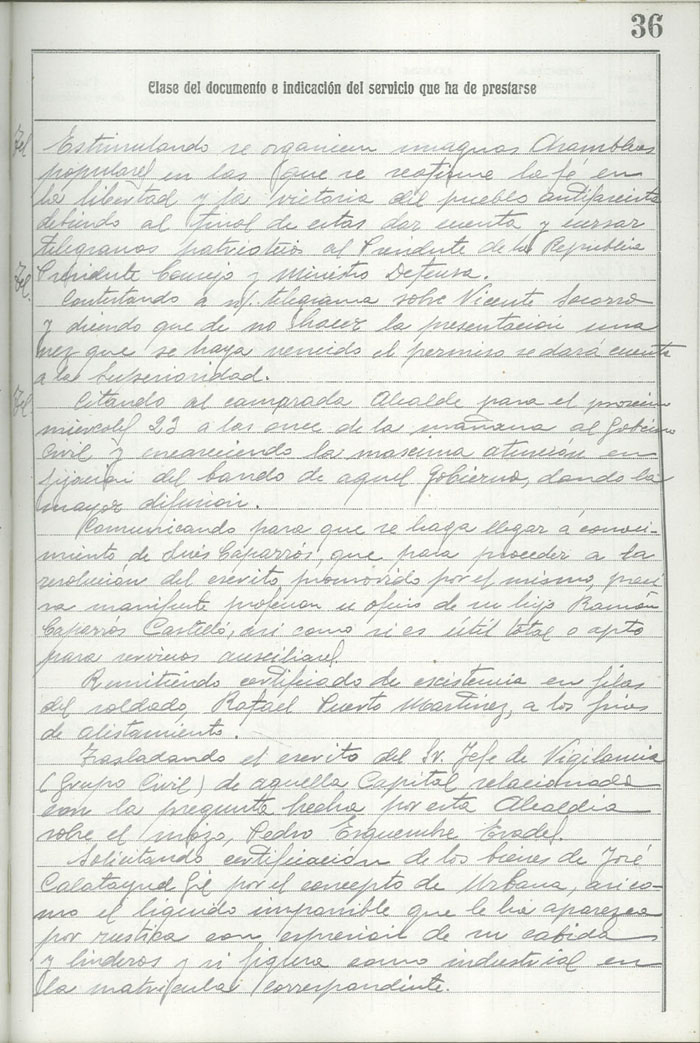 36
Clase del documento e indicación del servicio que ha de prestarse
Tel Estimulando se organicen magnas Asambleas
populares en las que se reafirme la fé en
la libertad y la victoria del pueblo antifascista
debiendo al final de estas dar cuenta y cursar
telegramas patrioticos al Presidente de la Republica
Tel. Presidente Consejo y Ministro Defensa.
Contestando a n/. telegrama sobre Vicente Socorro
y diendo que de no hacer la presentación una
vez que se haya vencido el permiso se dará cuenta
a la Superioridad.
Tel. Citando al camarada Alcalde para el proximo
miercoles 23 a las once de la mañana al Gobierno
Civil y encareciendo la maxima atención en
fijacion del bando de aquel Gobierno, dando la
mayor difusion.
Comunicando para que se haga llegar á conoci-
miento de Luis Caparrós, que para proceder a la
resolución del escrito promovido por el mismo, preci-
sa manifieste profesion u oficio de su hijo Ramón
Caparrós Castelló, asi como si es útil total o apto
para servicios auxiliares.
Remitiendo certificado de existencia en filas
del soldado, Rafael Puerto Martinez, a los fines
de alistamiento.
Trasladando el escrito del Sr. Jefe de Vigilancia
(Grupo Civil) de aquella Capital relacionado
con la pregunta hecha por esta Alcaldia
sobre el mozo, Pedro Esquembre
Solicitando certificación de los bienes de José
Calatayud Gil por el concepto de Urbana, asi co-
mo el liquido imponible que le ha aparezca
por rustica con expresion de su cabida
y linderos y si figura como industrial en
la matricula correspondiente.